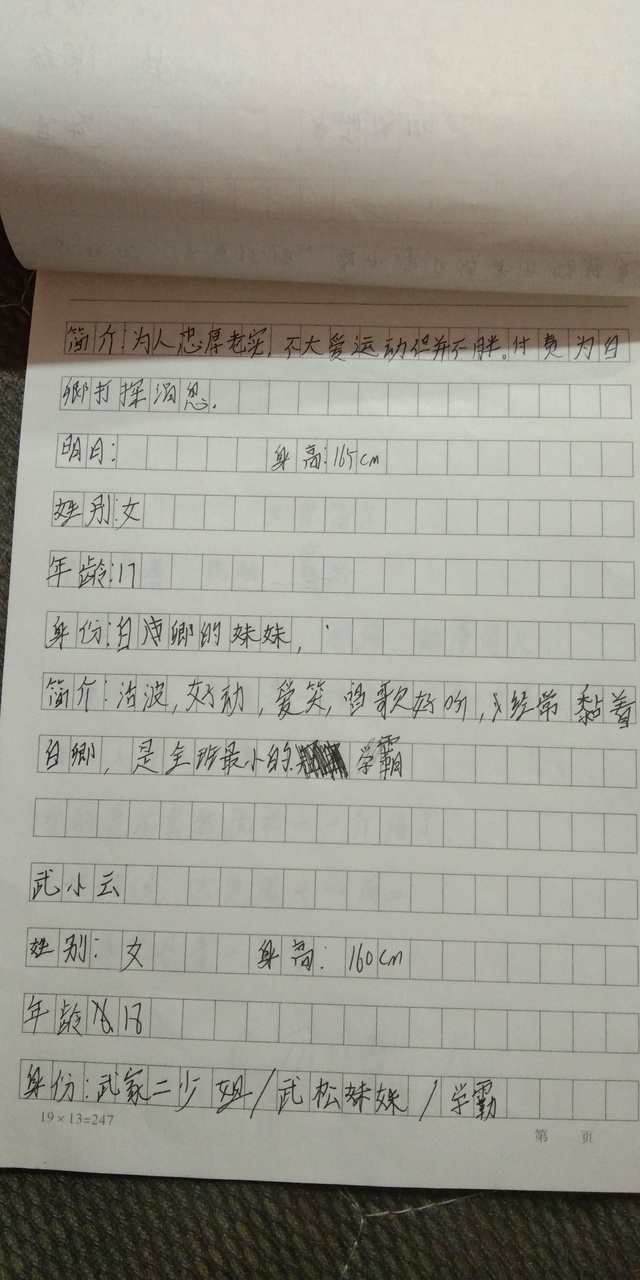 简介:为人忠厚老实,不大爱运动但并不胖。付责为白
卿打探消息.
明月: 身高:165cm
姓别:女
年龄:17
身份:白浅卿的妹妹,
简介:活波,好动,爱笑,唱歌好听,经常黏着
白卿,是全班最小的学霸
武小云
姓别:女 身高:160cm
年龄18
身份:武家二少姐/武松妹妹/学霸
19×13=247
第 页